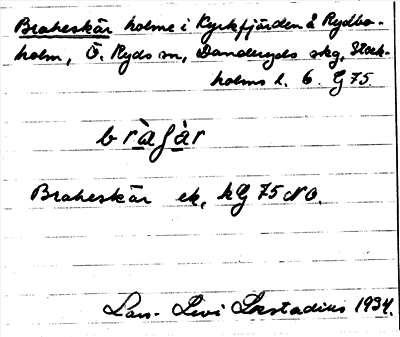 Braheskär holme i Kyrkfjärden å Rydbo-
holm, Ö. Ryds sn, Danderyds skg, Stock-
holms l. 6. G 75.
bràgàr
Braheskär ek, kG 75 NO.
Lars-Levi Læstadius 1934.